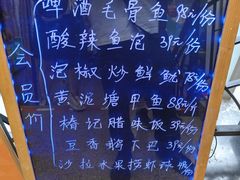 啤酒毛骨鱼 98元/份
酸辣鱼泡 39元/份
泡椒炒鲜鱿 78元/份
黄泥塘甲鱼 88元/份
椿记腊味饭 39元/份
豆香鹅下巴 39元/份
沙拉水果捞虾球
会员价